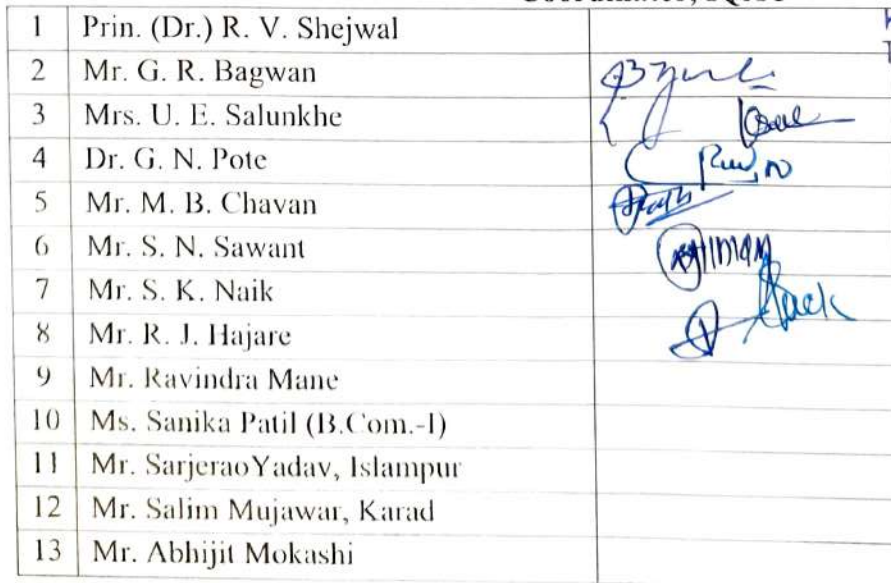 1 Prin. (Dr.) R. V. Shejwal
2 Mr. G. R. Bagwan
3 Mrs. U. E. Salunkhe
4 Dr. G. N. Pote
5 Mr. M. B. Chavan
6 Mr. S. N. Sawant
7 Mr. S. K. Naik
8 Mr. R. J. Hajare
9 Mr. Ravindra Mane
10 Ms. Sanika Patil (B.Com.-I)
11 Mr. SarjeraoYadav, Islampur
12 Mr. Salim Mujawar, Karad
13 Mr. Abhijit Mokashi